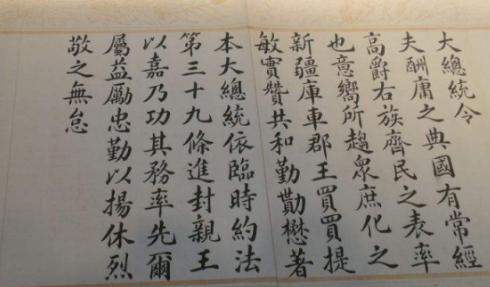 大總統令
夫酬庸之典國有常經
高爵右族齊民之表率
也意嚮所趨衆庶化之
新疆庫車郡王買買提
敏實贊共和勤勩懋著
本大總統依臨時約法
第三十九條進封親王
以嘉乃功其務率先爾
屬益勵忠勤以揚休烈
敬之無怠